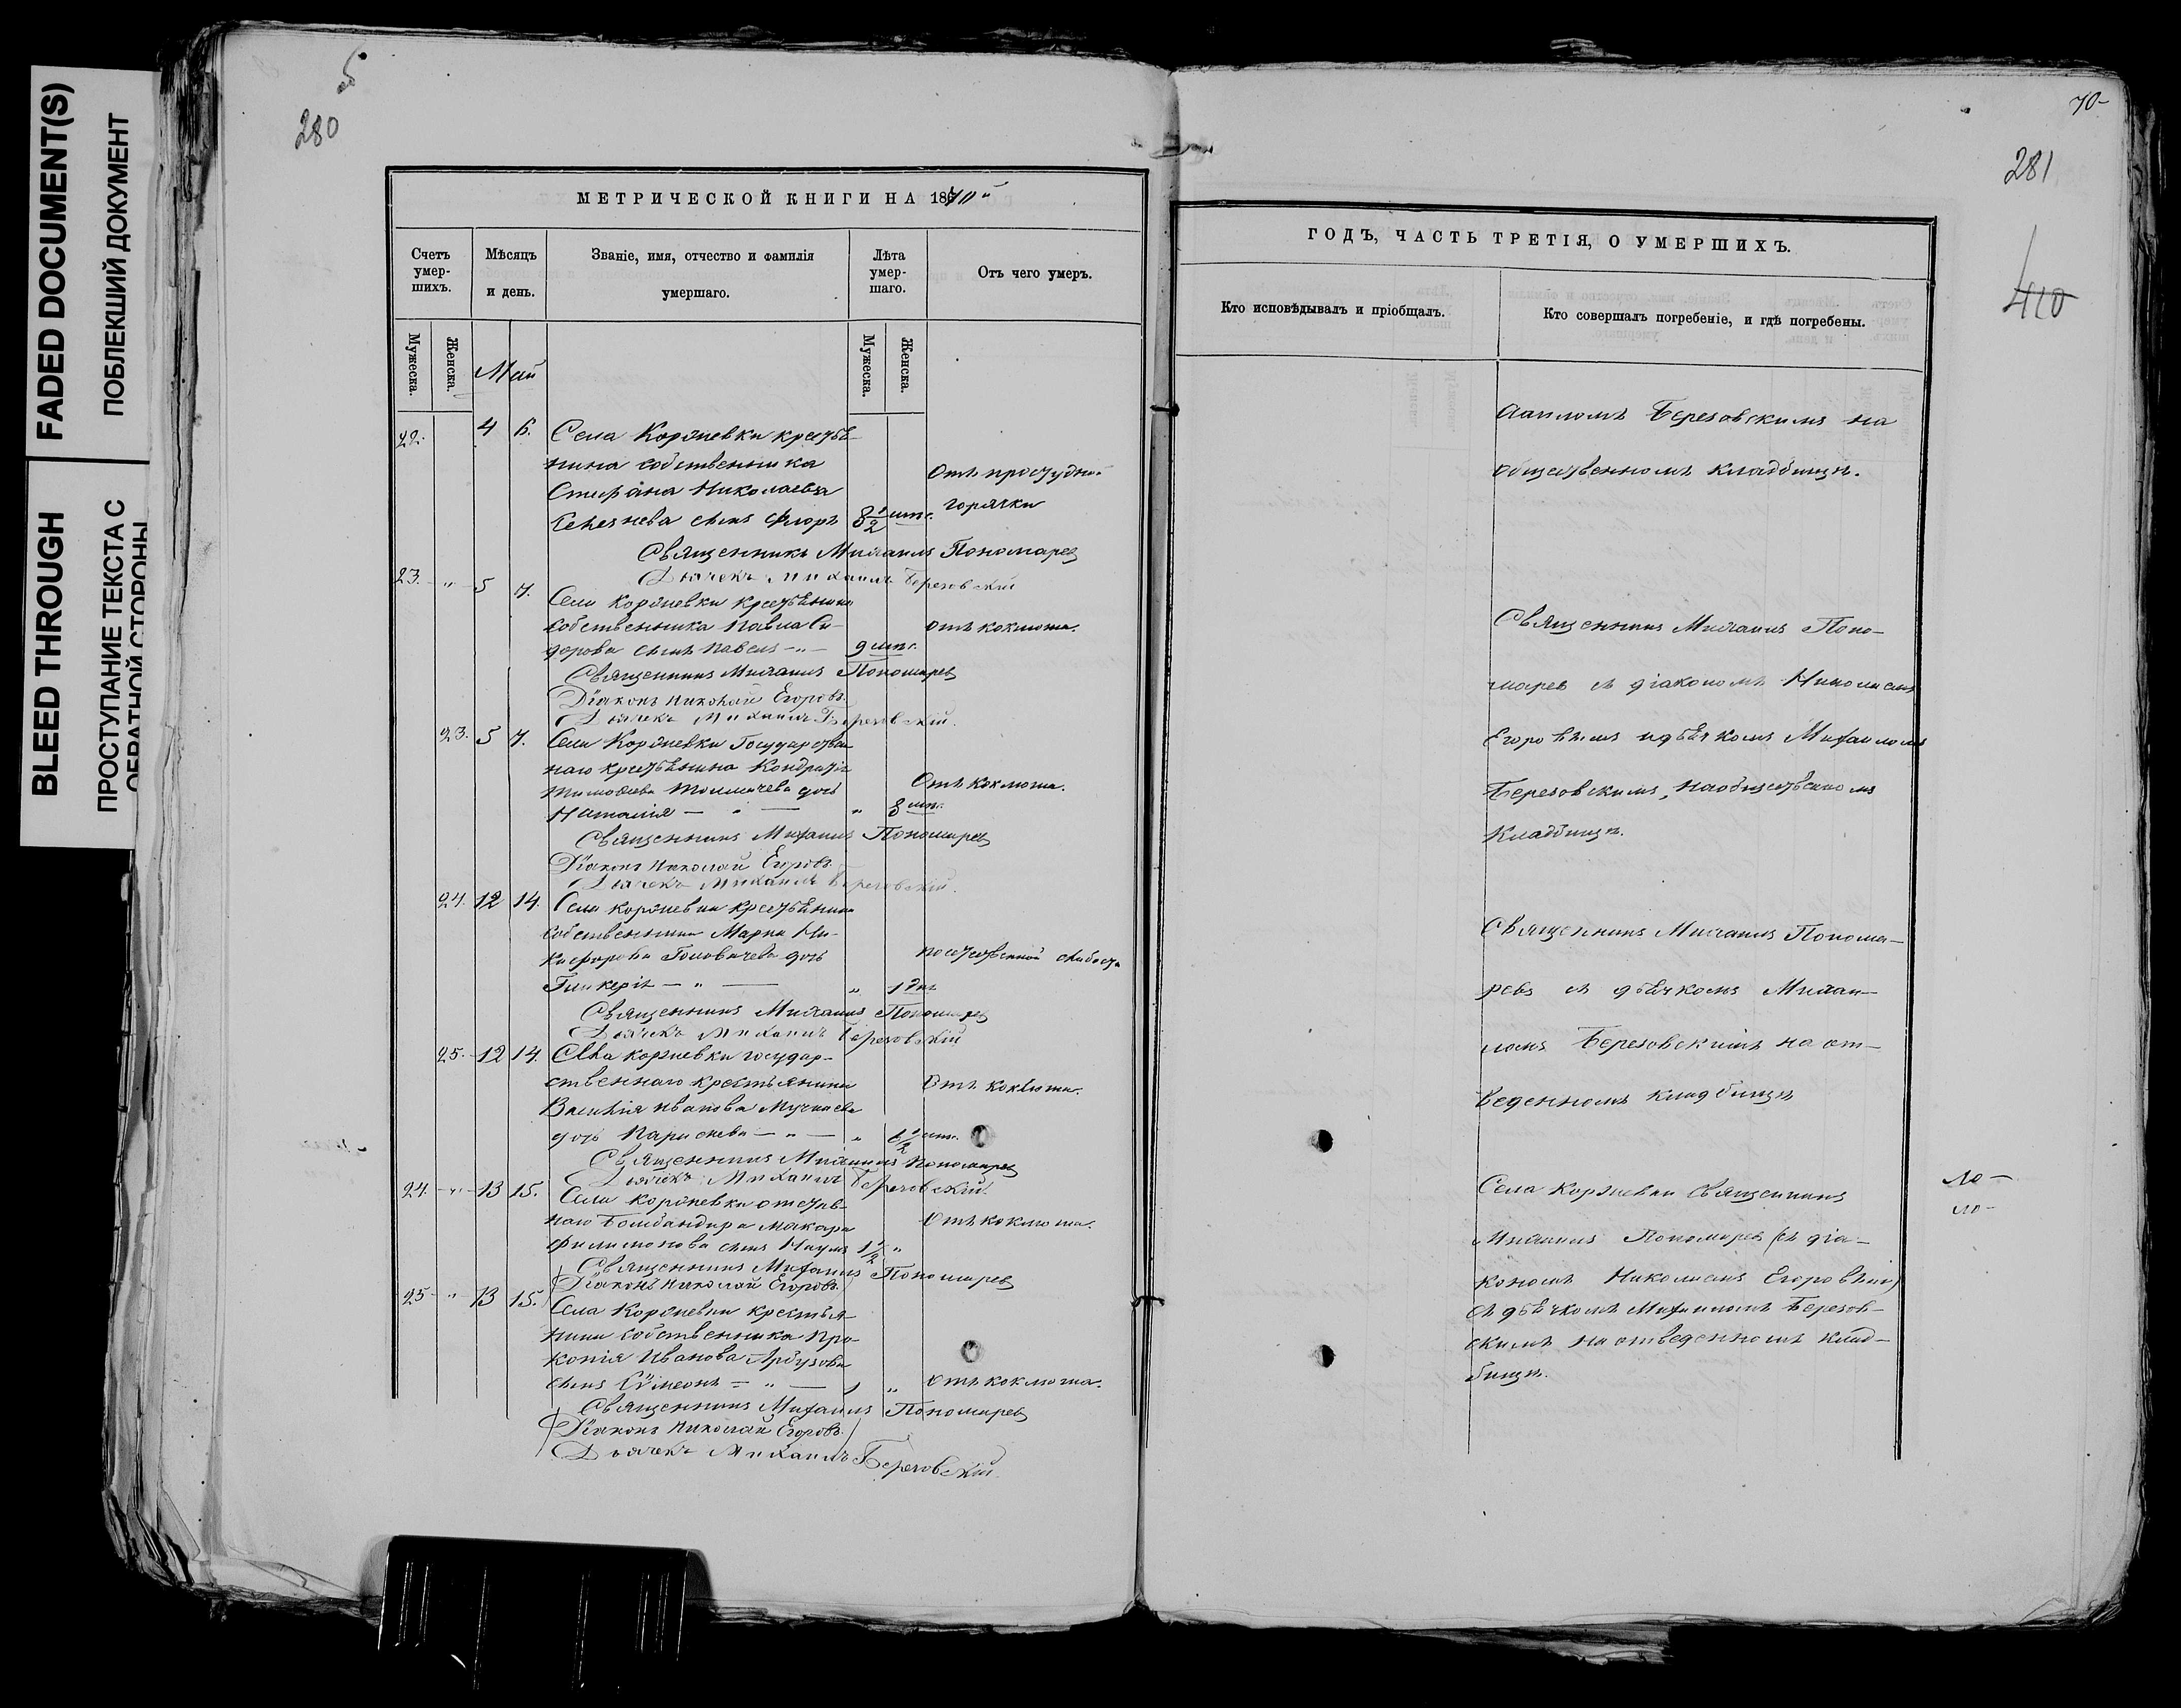 FADED DOCUMENT(S)
ПОБЛЕКШИЙ ДОКУМЕНТ
BLEED THROUGH
ПРОСТУПАНИЕ ТЕКСТА С
ОБРАТНОЙ СТОРОНЫ
280
МЕТРИЧЕСКОЙ КНИГИ НА 1870й
Счетъ умер-шихъ.
Мѣсяцъ и день.
Званіе, имя, отчество и фамилія умершаго.
Лѣта умер-шаго.
Отъ чего умеръ.
Мужеска.
Женска.
Май
Мужеска.
Женска.
22. 4 6. Села Коряневки крестья-
нина собственника
Стефана Николаева
сынъ Флоръ 8 1/2 мѣс. Отъ простудн. горячки
Священникъ Михаилъ Пономаревъ
Дьячекъ Михаилъ Березовскій
23. " 5 7. Села Коряневки крестьянина
собственника Павла Си-
дорова сынъ Павелъ 9 мѣс. Отъ коклюша.
Священникъ Михаилъ Пономаревъ
Діаконъ Николай Егоровъ.
Дьячекъ Михаилъ Березовскій.
23. 5 7. Села Коряневки Государствен-
наго крестьянина Кондратія
Тимофеева Толмачева дочь Отъ коклюша.
Наталія — " — " 8 мѣс.
Священникъ Михаилъ Пономаревъ
Діаконъ Николай Егоровъ.
Дьячекъ Михаилъ Березовскій.
24. 12 14. Села Коряневки крестьянина
собственника Марка Ни-
кифорова Головачева дочь По естественной слабости
Гликерія — " — " 1 дня
Священникъ Михаилъ Пономаревъ
Дьячекъ Михаилъ Березовскій
25. 12 14. Села Коряневки государ-
ственнаго крестьянина Отъ коклюша.
Василія Иванова
дочь — " — " 1/2 мѣс.
Священникъ Михаилъ Пономаревъ
Дьячекъ Михаилъ Березовскій.
24. " 13 15. Села Коряневки отстав-
наго Бомбандира Макара Отъ коклюша.
Филимонова сынъ Наумъ 1 1/2 "
Священникъ Михаилъ Пономаревъ
Діаконъ Николай Егоровъ.
25 " 13 15. Села Коряневки крестья-
нина собственника Про-
копія Иванова Арбузова
сынъ Сѵмеонъ — " — 1 " Отъ коклюша.
Священникъ Михаилъ Пономаревъ
Діаконъ Николай Егоровъ.
Дьячекъ Михаилъ Березовскій.
70-
281
410
ГОДЪ, ЧАСТЬ ТРЕТІЯ, О УМЕРШИХЪ.
Кто исповѣдывалъ и пріобщалъ.
Кто совершалъ погребеніе, и гдѣ погребены.
хаиломъ Березовскимъ на
общественномъ кладбищѣ.
Священникъ Михаилъ Поно-
маревъ съ діакономъ Николаемъ
Егоровымъ и дьячкомъ Михаиломъ
Березовскимъ, на общественномъ
кладбищѣ.
Священникъ Михаилъ Понома-
ревъ съ дьячкомъ Михаи-
ломъ Березовскимъ на от-
веденномъ кладбищѣ
Села Коряневки Священникъ
Михаилъ Пономаревъ (съ діа-
кономъ Николаемъ Егоровымъ)
съ дьячкомъ Михаиломъ Березов-
скимъ на отведенномъ клад-
бищѣ.